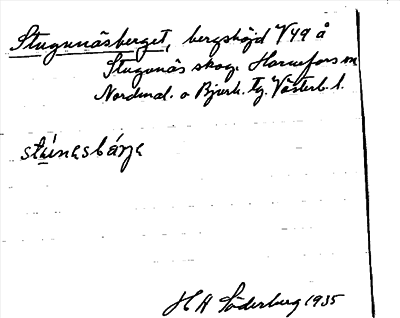 Stugunäsberget, bergshöjd V49 å
Stugunäs skog. Hörnefors sn
Nordmal. o Bjurh. tg. Västerb. l.
stúnasbárja
H A Söderberg 1935